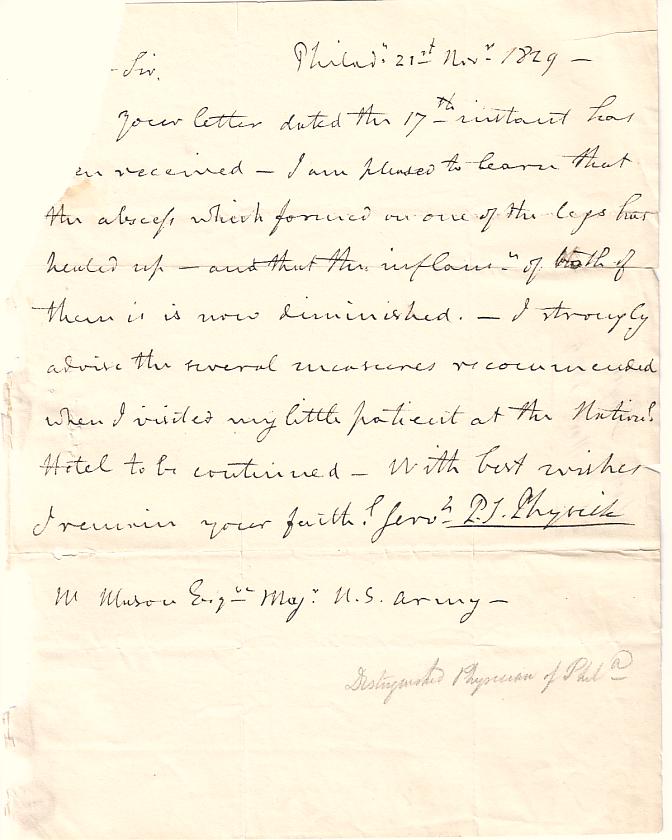 Philad.ª 21st Novr. 1829 —
Sir,
Your letter dated the 17th instant has
en received — I am pleased to learn that
the abscess which formed on one of the legs has
healed up — and that the inflamn. of both of
them is is now diminished. — I strongly
advise the several measures recommended
when I visited my little patient at the National
Hotel to be continued — With best wishes
I remain your faithl. Servt. P. S. Physick
M Mason Esqre Majr. U.S. Army —
Distinguished Physician of Phila